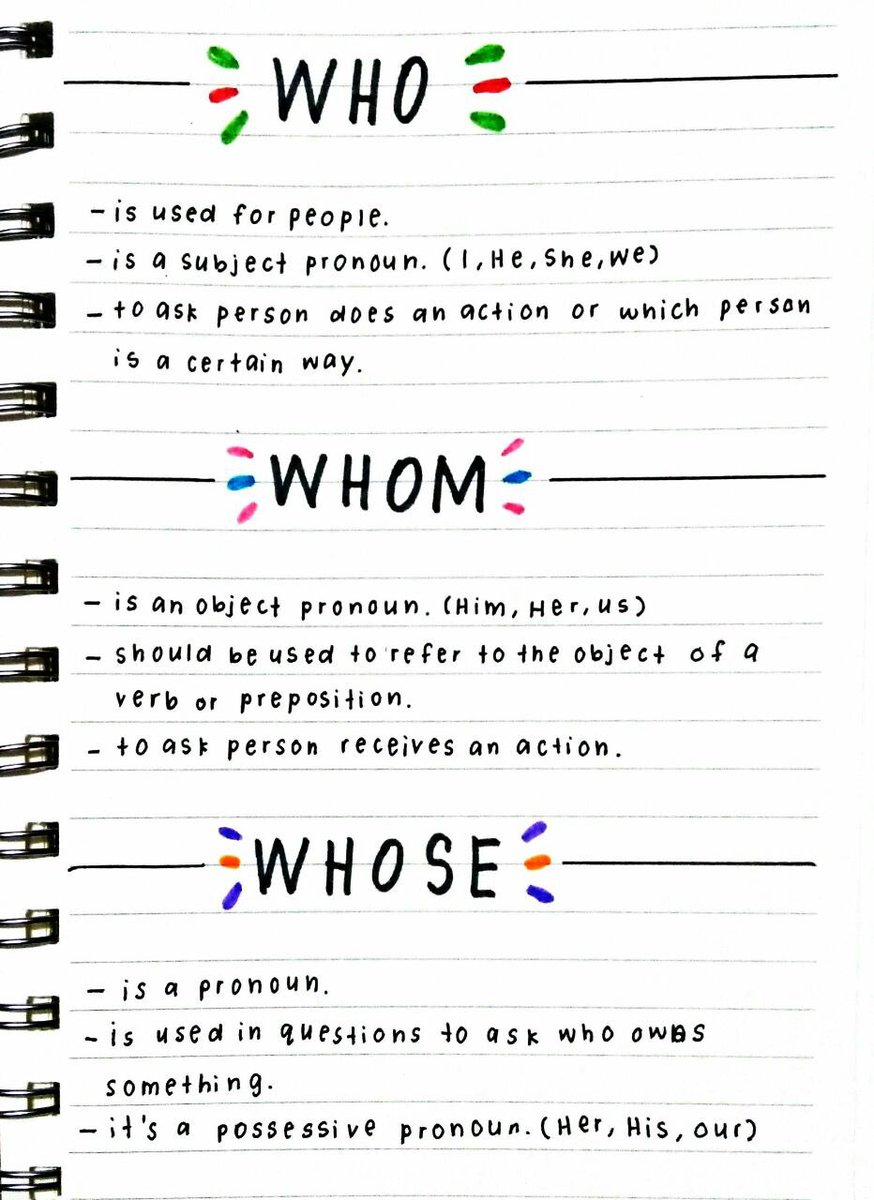 WHO
- is used for people.
- is a subject pronoun. (I, He, She, We)
- to ask person does an action or which person
is a certain way.
WHOM
- is an object pronoun. (Him, Her, us)
- should be used to refer to the object of a
verb or preposition.
- to ask person receives an action.
WHOSE
- is a pronoun.
- is used in questions to ask who owns
something.
- it's a possessive pronoun. (Her, His, our)